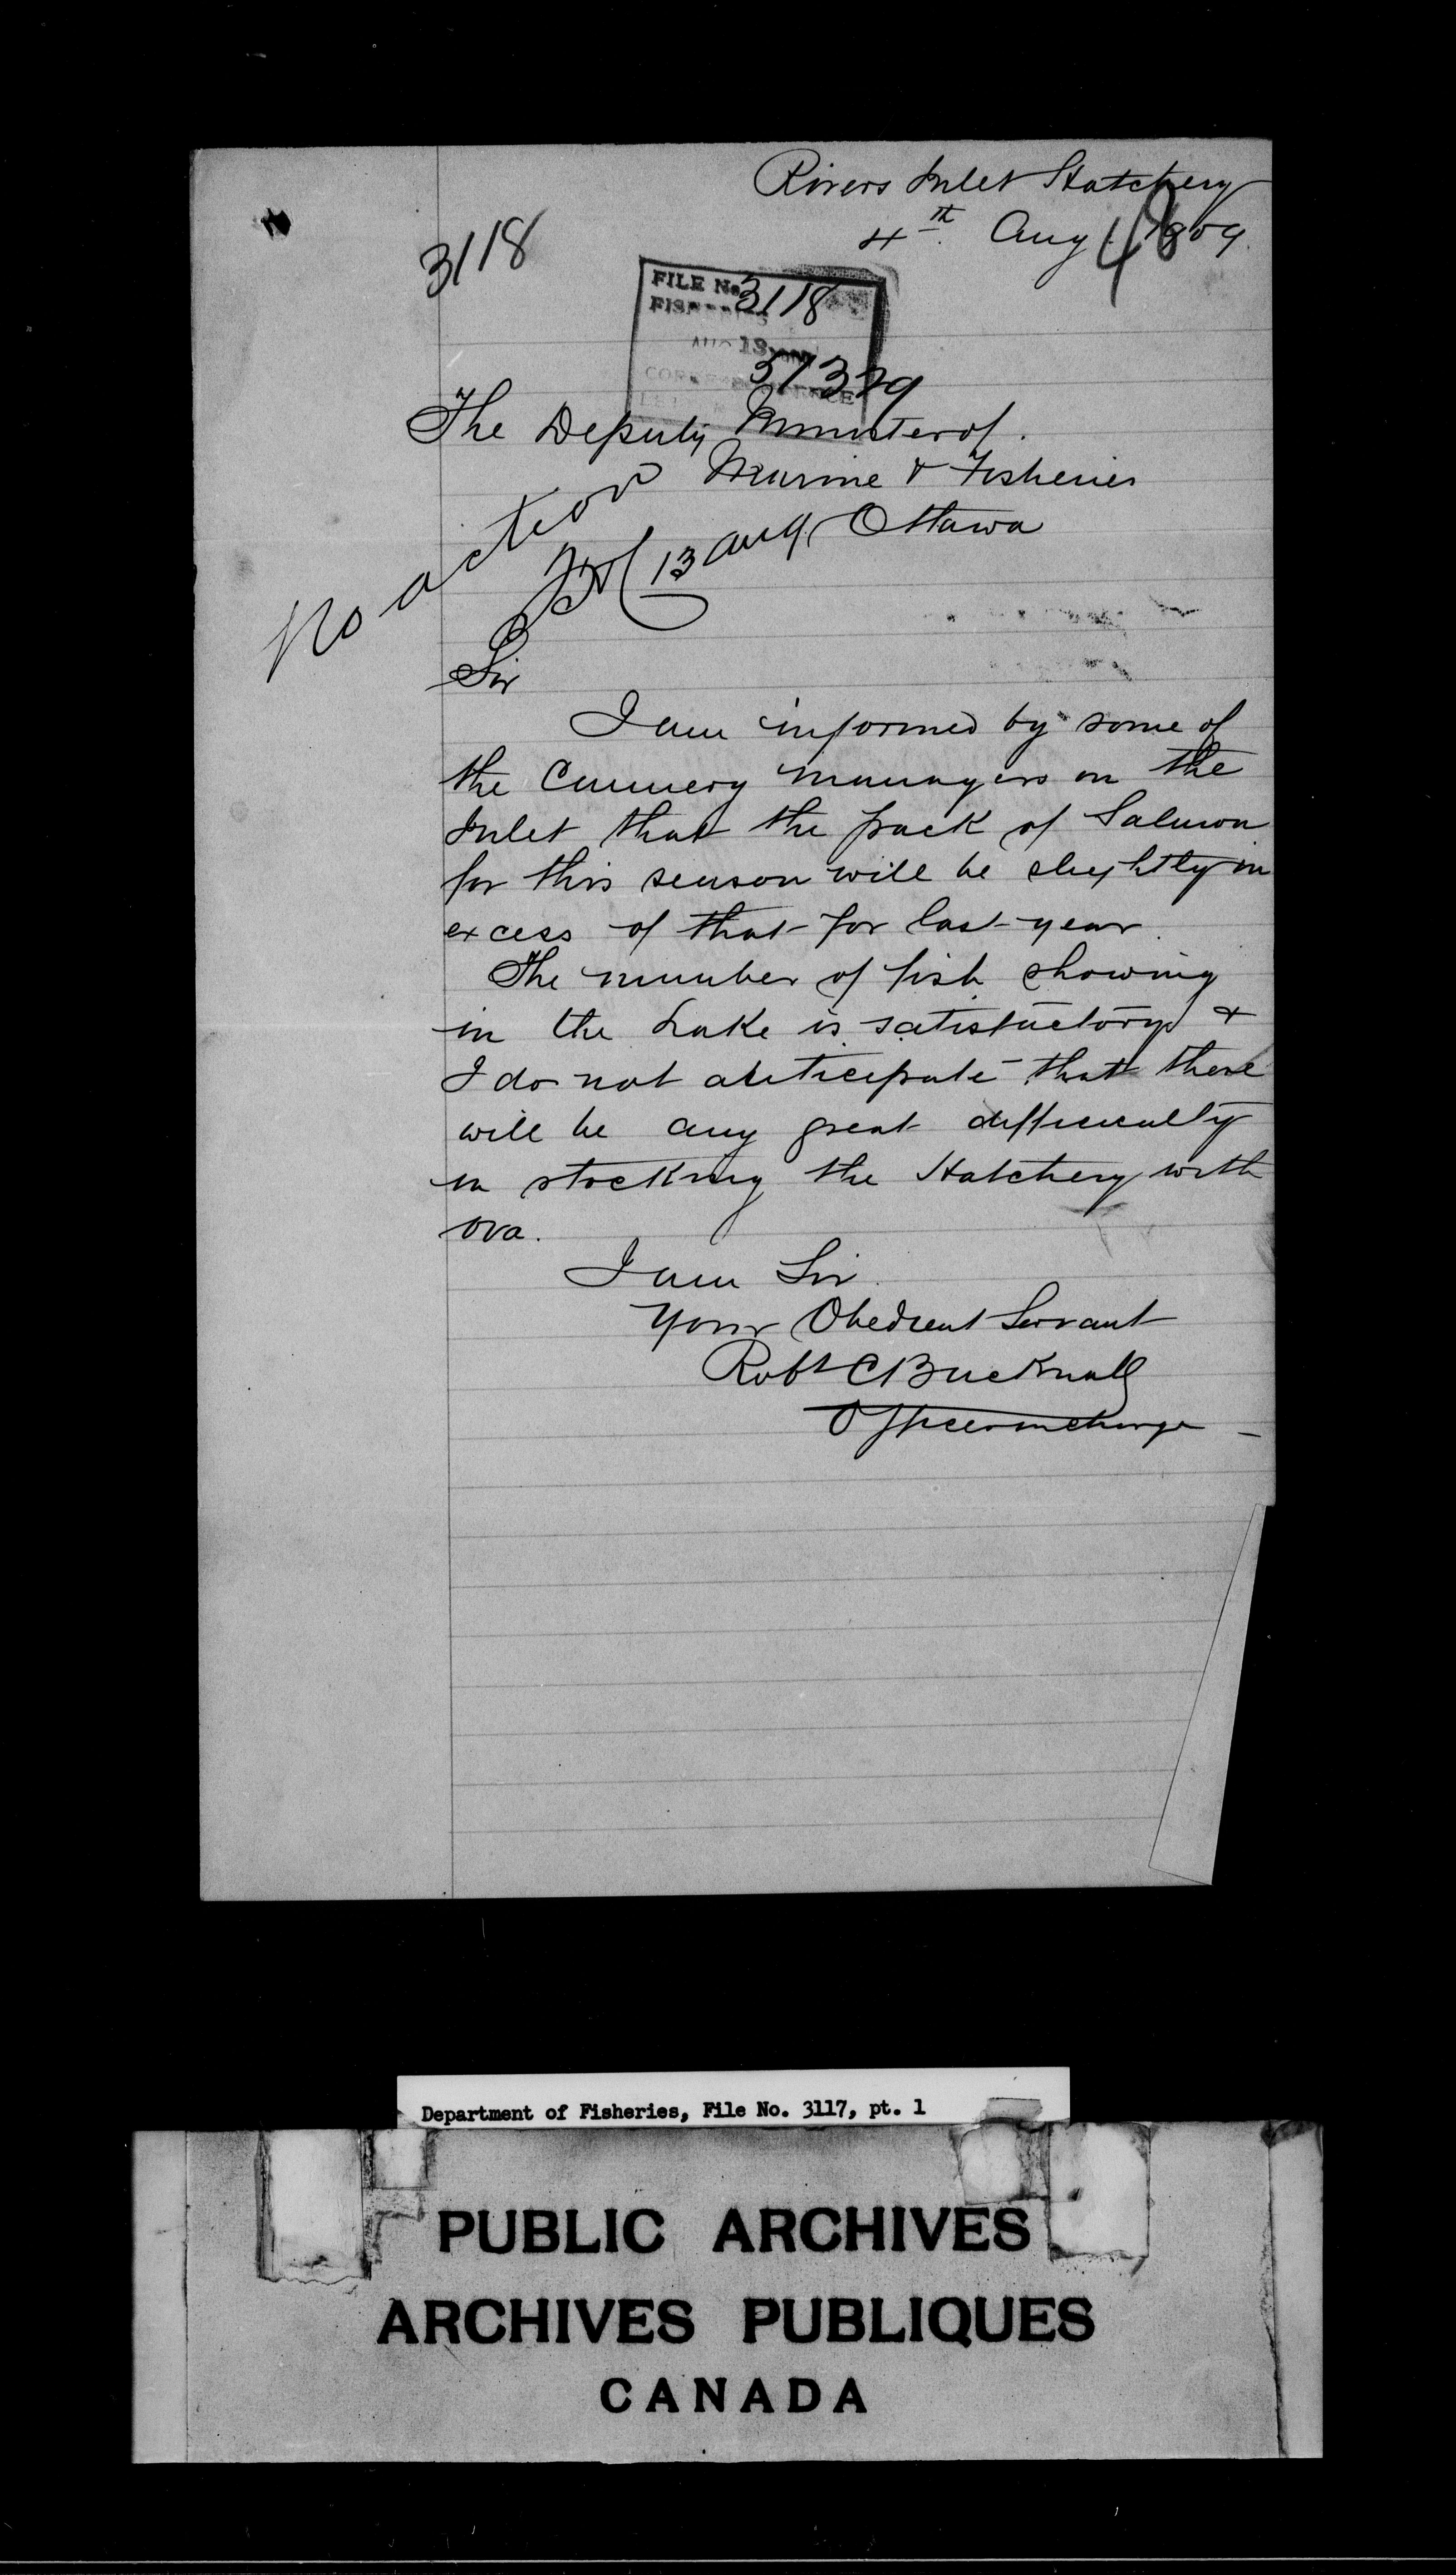 Rivers Inlet Hatchery
4th. Aug 1909.
48
3118
FILE No. 3118
FISHERIES
AUG 13
57329
CORRESPONDENCE
The Deputy Minister of.
Marine & Fisheries
Ottawa
No action
13 Aug.
Sir
I am informed by some of
the Cannery managers on the
Inlet that the pack of Salmon
for this season will be slightly in
excess of that for last year.
The number of fish showing
in the Lake is satisfactory &
I do not anticipate that there
will be any great difficulty
in stocking the Hatchery with
ova.
I am Sir.
Your Obedient Servant
Robt C Bucknall
Officer in charge
Department of Fisheries, File No. 3117, pt. 1
PUBLIC ARCHIVES
ARCHIVES PUBLIQUES
CANADA